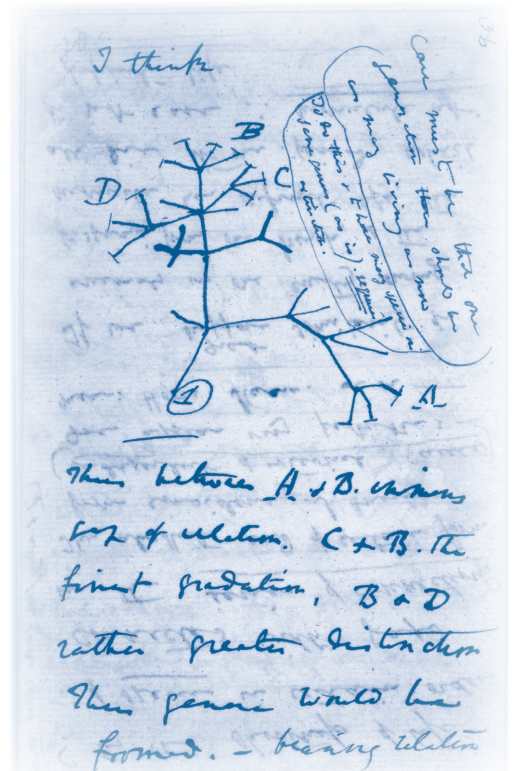 I think
B
D
C
Case must be that one
generation then should be
as many living as now
To do this & to have many species in
same genus (as is). requires
extinction.
1
A
Thus between A & B. immens
gap of relation. C & B. the
finest gradation, B & D
rather greater distinction
Thus genera would be
formed. — bearing relation
36